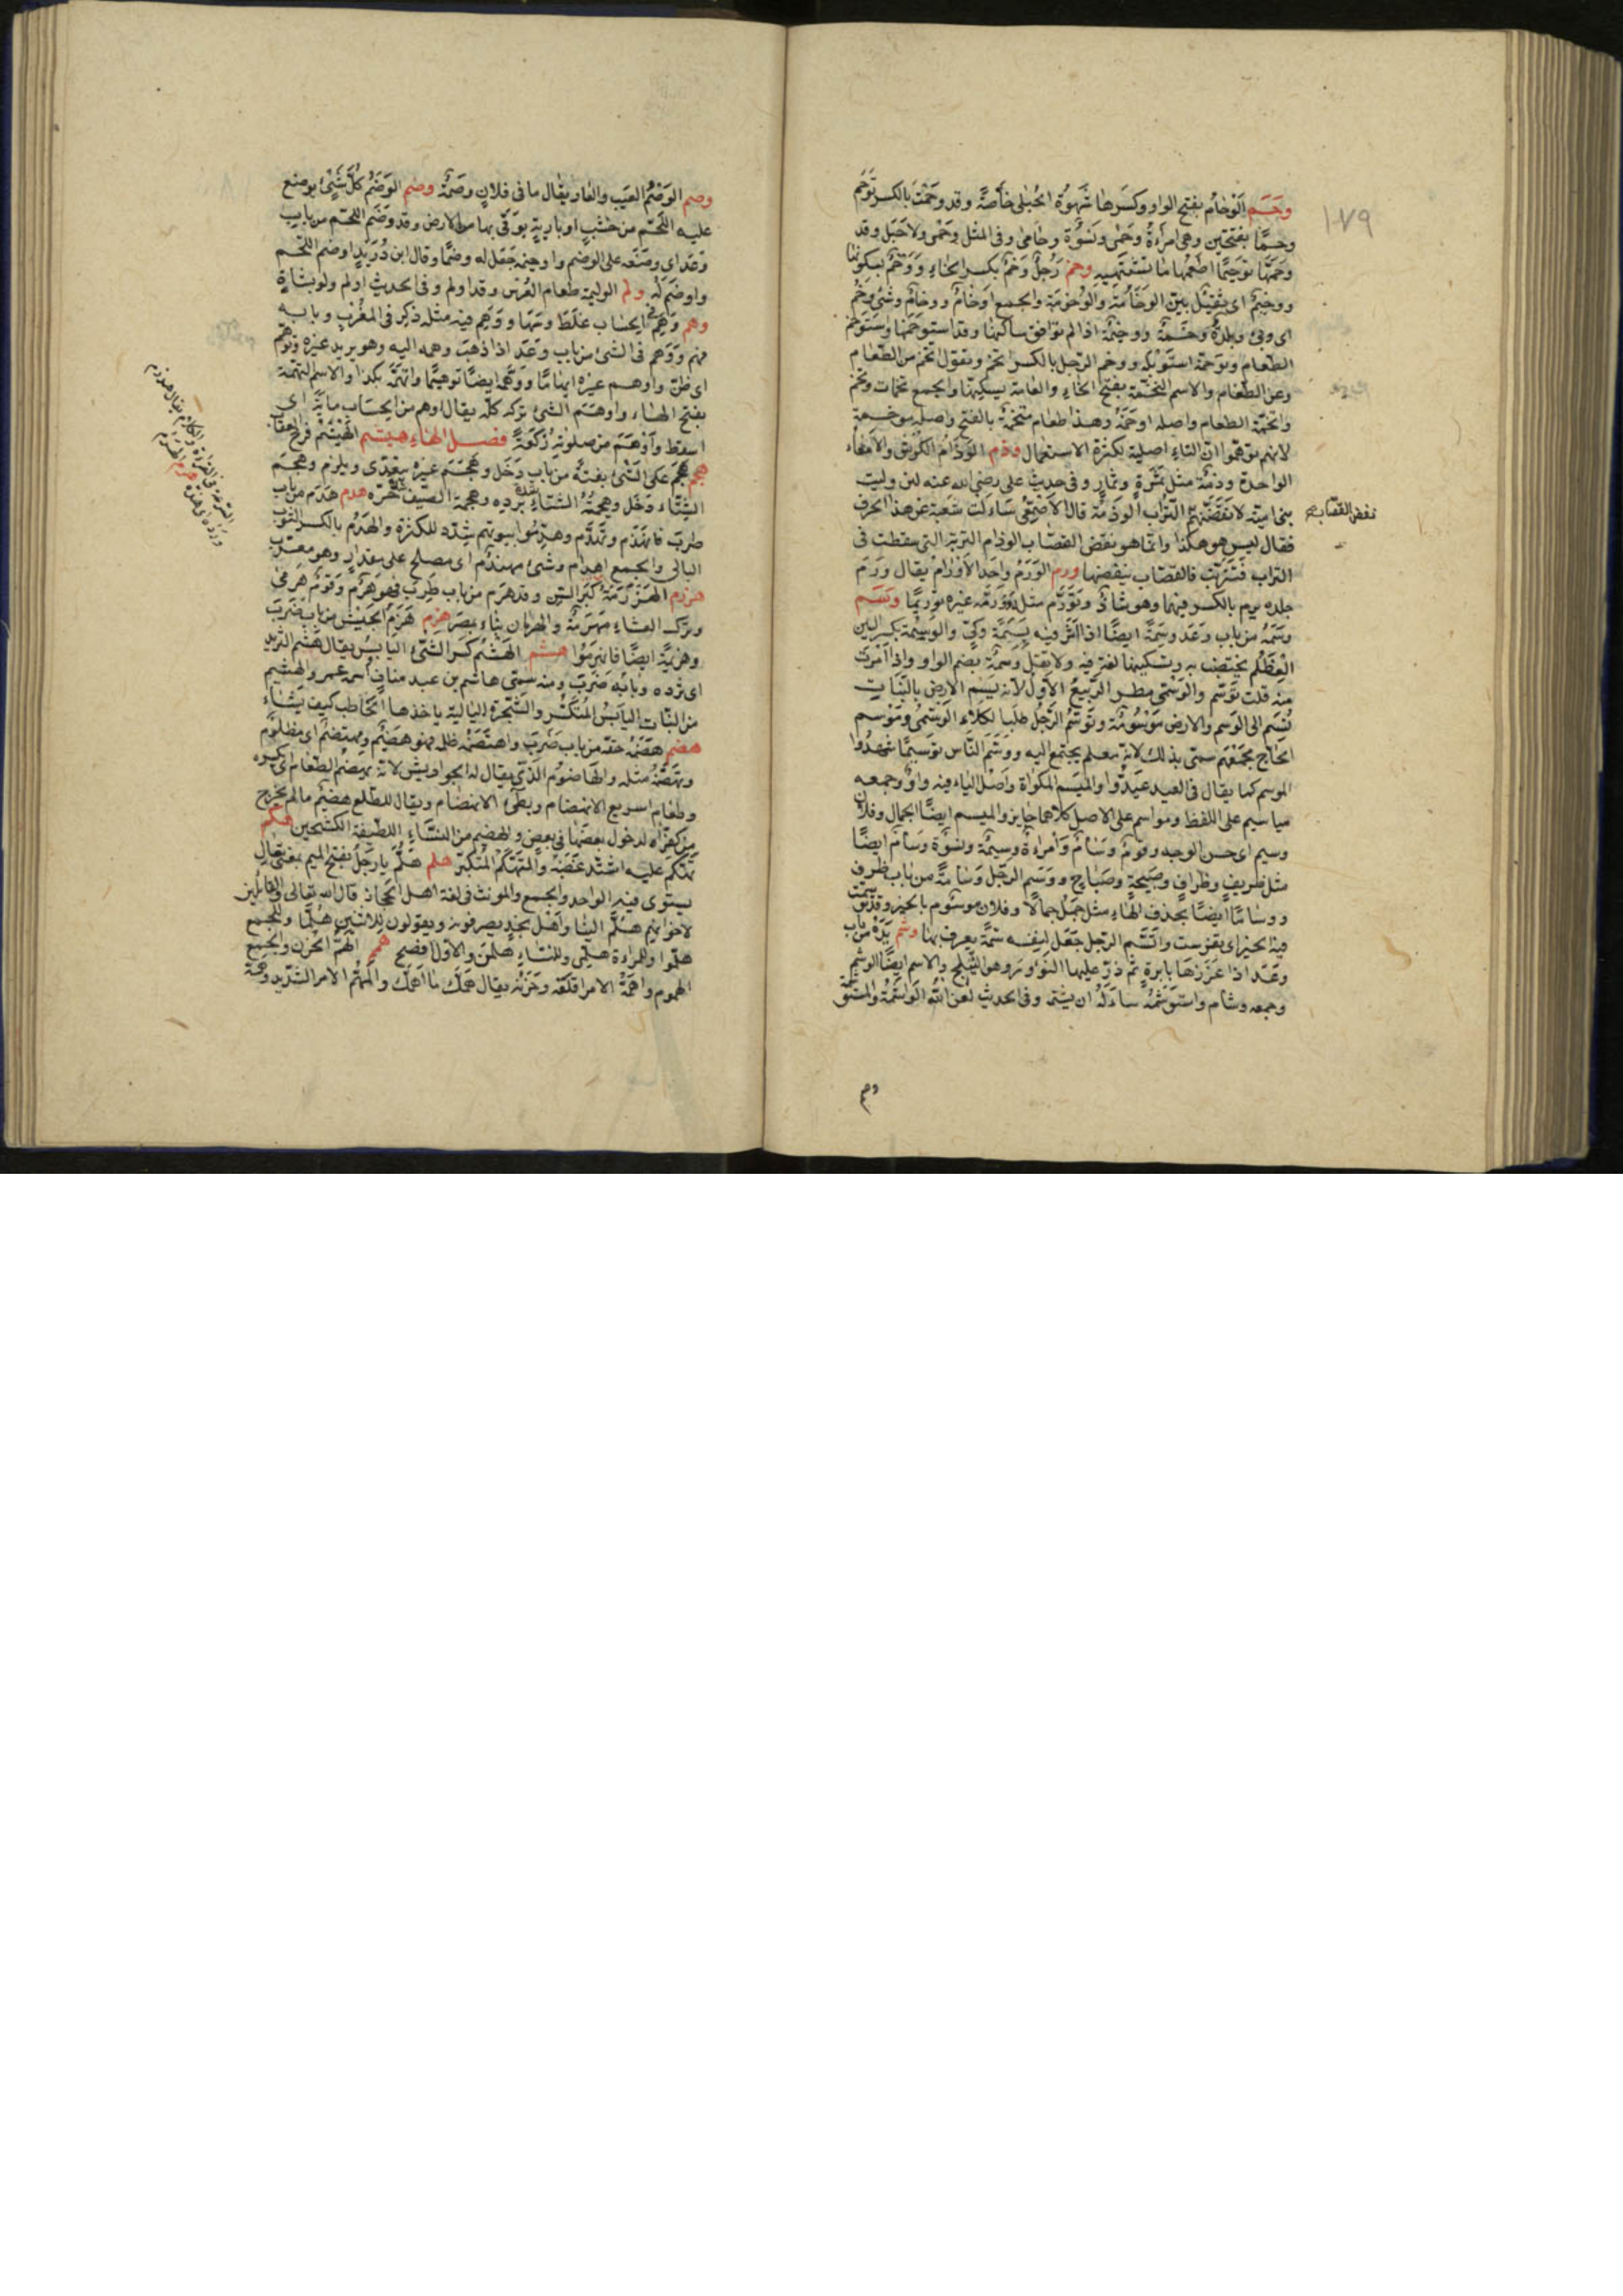 ١٧٩
وحم الوَحَام بفتح الواو وكسرها شهوة الحبلى خاصّة وقد وحمت بالكسر توحم
وحمًا بفتحتين وهى امرأة وحمى ونسوة وحامى وفى المثل وحمى ولا حبل وقد
وحّمها توحيمًا اطعمها ما تشتهيه وخم رجل وخم بكسر الخاء ووخم بسكونها
ووخيم اى ثقيل بيّن الوخامة والوخومة والجمع اوخام ووخام وشىء وخم
اى وبىء وبلدة وخمة ووخيمة اذا لم توافق ساكنها وقد استوخمها واستوخم
الطعام وتوخمه استوبله ووخم الرجل بالكسر اتخم وتقول اتخم من الطعام
وعن الطعام والاسم التخمة بفتح الخاء والعامة يسكنها والجمع تخمات وتخم
واتخمه الطعام واصله اوخمه وهذا طعام متخمة بالفتح واصله موخمة
لانهم توهموا انّ التاء اصلية لكثرة الاستعمال وذم الوذام الكرش والامعاء
الواحدة وذمة مثل ثمرة وثمار وفى حديث على رضى الله عنه لئن وليت
بنى امية لانفضنّهم التراب الوذمة قال الاصمعى سألت شعبة عن هذا الحرف
نفض القصاب
فقال ليس هو هكذا وانما هو نفض القصاب الوذام التربة التى سقطت فى
التراب فتترّبت فالقصّاب ينفضها ورم الورم واحد الاورام يقال ورم
جلده يرم بالكسر فيهما وهو شاذ وتورّم مثله وورّمه غيره توريمًا وسم
وسمه من باب وعد وسمة ايضًا اذا اثّر فيه بسمة وكىّ والوسمة بكسر السين
العظلم يختضب به وتسكينها لغة فيه ولا تقل وسمة بضم الواو واذا امرت
منه قلت توسم والوسمى مطر الربيع الاول لانه يسم الارض بالنبات
نُسب الى الوسم والارض موسومة وتوسّم الرجل طلب كلاء الوسمى وموسم
الحاج مجمعهم سمى بذلك لانه معلم يجتمع اليه ووسّم الناس توسيمًا شهدوا
الموسم كما يقال فى العيد عيّدوا والميسم المكواة واصل الياء فيه واو وجمعه
مياسيم على اللفظ ومواسم على الاصل كلاهما جايز والميسم ايضًا الجمال وفلان
وسيم اى حسن الوجه وقوم وسام وامراة وسيمة ونسوة وسام ايضًا
مثل ظريف وظراف وصبيحة وصباح ووسم الرجل وسامة من باب ظرف
ووسامًا ايضًا بحذف الهاء مثل جمل جمالا وفلان موسوم بالخير وقد توسمت
فيه الخير اى تفرست واتّسم الرجل جعل لنفسه سمة يعرف بها وشم يده من باب
وعد اذا غرزها بابرة ثم ذرّ عليها النؤور وهو النيلج والاسم ايضًا الوشم
وجمعه وشام واستوشمه ساءله ان يشمه وفى الحديث لعن الله الواشمة والمستوشمة
وصم الوصم العيب والعار يقال ما فى فلان وصمة وضم الوضم كلّ شىء يوضع
عليه اللحم من خشب او بارية يوقى بها من الارض وقد وضم اللحم من باب
وعد اى وضعه على الوضم واوضمه جعل له وضمًا وقال ابن دريد اوضم اللحم
واوضم له ولم الوليمة طعام العرس وقد اولم وفى الحديث اولم ولو بشاة
وهم وهم فى الحساب غلط وسها ووهم فيه مثله ذكر فى المغرب وبابه
فهم ووهم فى الشىء من باب وعد اذا ذهب وهمه اليه وهو يريد غيره وتوهّم
اى ظنّ واوهم غيره ايهامًا ووهّمه ايضًا توهيمًا واتهمه بكذا والاسم التهمة
بفتح الهاء واوهم الشىء تركه كله يقال اوهم من الحساب ماية اى
اسقط واوهم من صلوته ركعة فصل الهاء هيثم الهيثم فرخ العقاب
هجم هجم على الشىء بغتة من باب دخل وهجم غيره يتعدى ويلزم وهجم
الشتاء دخل وهجمة الشتاء شدة برده وهجمة الصيف شدة حرّه هدم هدم من باب
ضرب فانهدم وتهدّم وهدّموا بيوتهم شدّد للكثرة والهدم بالكسر الثوب
البالى والجمع اهدام وشىء مهندم اى مصلح على مقدار وهو معرب
هرم الهرم كبر السن وقد هرم من باب طرب فهو هرم وقوم هرمى
وترك العشاء مهرمة والهرمان بناء بمصر هزم هزم الجيش من باب ضرب
وهزيمة ايضًا فانهزموا هشم الهشم كسر الشىء اليابس يقال هشم الثريد
اى ثرده وبابه ضرب ومنه سمى هاشم بن عبد مناف اسمه عمرو والهشيم
من النبات اليابس المتكسّر والشجرة البالية ياخذها الحاطب كيف يشاء
هضم هضمه حقه من باب ضرب واهتضمه ظلمه فهو هضيم ومهتضم اى مظلوم
وتهضّمه مثله والهاضوم الذى يقال له الجوارش لانه يهضم الطعام اى يكسره
وطعام سريع الانهضام وبطىء الانهضام ويقال للطلع هضيم ما لم يخرج
من كفرّاه لدخول بعضها فى بعض والهضيم من النساء اللطيفة الكشحين هكم
تهكّم عليه اشتد غضبه والمتهكم المتكبّر هلم هلمّ يا رجل بفتح الميم بمعنى تعال
يستوى فيه الواحد والجمع والمونث فى لغة اهل الحجاز قال الله تعالى والقائلين
لاخوانهم هلمّ الينا واهل نجد يصرفونه ويقولون للاثنين هلمّا وللجمع
هلمّوا وللمراءة هلمّى وللنساء هلممن والاول افصح همم الهمّ الحزن والجمع
الهموم واهمّه الامر اقلقه وحزنه يقال همّك ما اهمّك والمهمّ الامر الشديد وهمّه